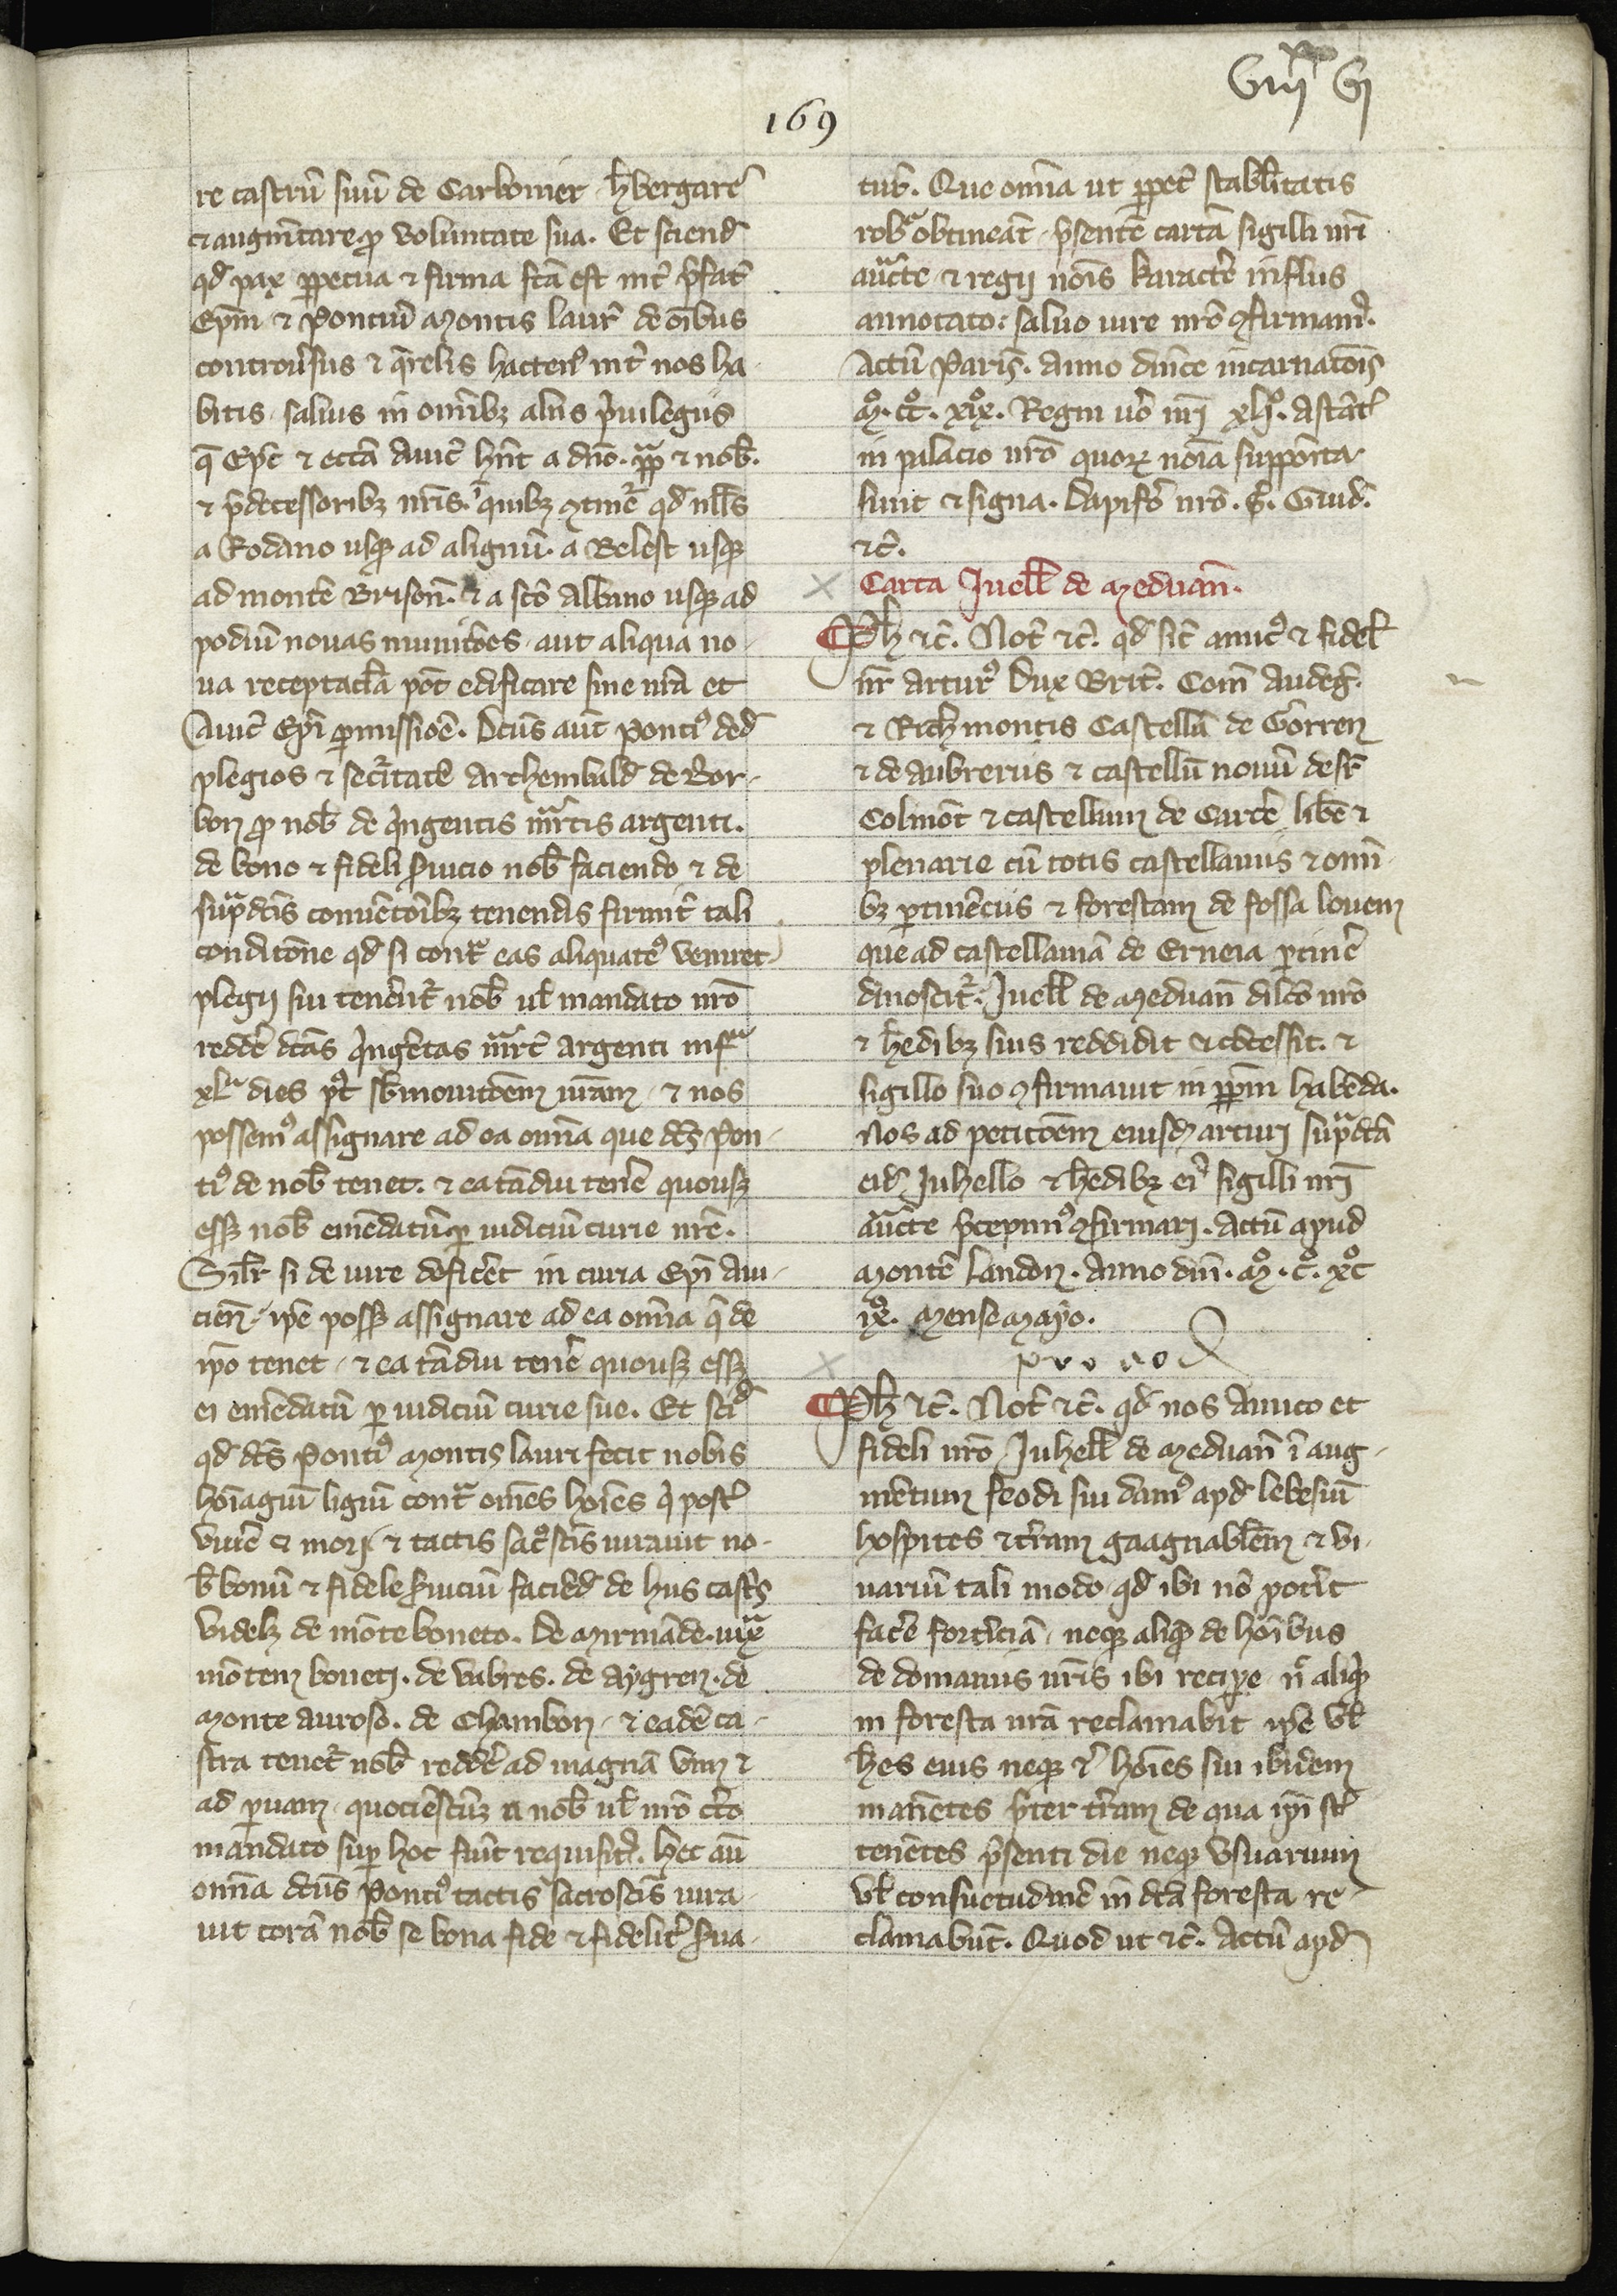 Viiixx vj
169
re castrũ suũ de Carbonier h̃bergare
⁊ augm̃tare p̱ voluntate sua. Et sciend̃
qd̃ pax ppetua ⁊ firma fc̃a est int̃ p̃fat̃
Ep̃m ⁊ Pontiũ Montis laur̃ de õibus
controũsiis ⁊ q̃relis hacten⁹ int̃ nos ha-
bitis. saluis in omnib; aliis p̃uilegiis
q̃ Ep̃c ⁊ ecc̃a Anic̃ hñt a dño ppa ⁊ nob̃.
⁊ p̃decessorib; nr̃is. quib; ↄtinet̃ qd̃ nll̃s
a Rodano usq; ad alignũ. a Belest usq;
ad montẽ Brison̄. ⁊ a scõ Albano usq; ad
podiũ nouas munitões aut aliqua no-
ua receptac̃la pot̃ edificare sine nr̃a et
Anic̃ Ep̃i p̱missiõe. Dcũs aut̃ Ponti⁹ ded̃
plegios ⁊ secr̃itatẽ Archembald̃ de Bor-
bon p̱ nob̃ de q̃ngentis marcis argenti.
de bono ⁊ fideli s̃uicio nob̃ faciendo ⁊ de
sup̃dc̃is conuẽtõib; tenendis firmit̃ tali
conditõne qd̃ si cont̃ eas aliquaten⁹ veniret
plegij sui tener̃ent̃ nob̃ ul̃ mandato nr̃o
redde̾ dc̃as q̃ngẽtas marc̃ argenti infa
xla dies p⁹t sb̃monitõem nr̃am ⁊ nos
possem⁹ assignare ad ea omnia que dc̃s Pon-
ti⁹ de nob̃ tenet. ⁊ ea tãdiu tenẽ quousq;
ess; nob̃ emẽdatũ p̱ iudiciũ curie nr̃e.
Silr̃ si de iure defic̃et in curia Ep̃i Ani-
cien̄. ip̃e poss; assignare ad ea omnia q̃ de
ip̃o tenet. ⁊ ea tãdiu tenẽ quousq; ess;
ei emẽdatũ p̱ iudiciũ curie sue. Et scid̃
qd̃ dc̃s Ponti⁹ Montis lauri fecit nobis
hom̃agiũ ligiũ cont̃ om̃es hoĩes q̃ post̃
viuẽ ⁊ mori ⁊ tactis sac̃oscis iurauit no-
b̃ bonũ ⁊ fidele s̃uiciũ faciẽd̃ de hiis cast̃s
videl; de mõte boneto. de Mirmãde. iuxa
mõtem boneti. de vabres. de aygren. de
Monte auroso. de Chambon. ⁊ eadẽ ca-
stra tenet̃ nob̃ redde̾ ad magnã vim ⁊
ad p̱uam. quociẽscũq; a nob̃ ul̃ nr̃o c̃to
mandato sup̱ hoc fuĩt requisit̃. Hec aũ
omnia dcũs Ponti⁹ tactis sacroscĩs iura-
uit corã nob̃ se bona fide ⁊ fidelit̃ s̃ua-
tur̃. Que omnia ut ppet̃ stabil̃itatis
robur obtineãt. p̃sentẽ cartã sigilli nr̃i
auc̃te ⁊ regij noĩs karact̃e inf̃ius
annotato: saluo iure nr̃o ↄfirmam⁹.
Actũ Paris̃. Anno dñice incarnatõis
M⁰. cc⁰. xix⁰. Regni u̾o nr̃i xlj⁰. Astãtib;
in palacio nr̃o quoꝝ noĩa suppõita
sunt ⁊ signa. Dapif̃o nr̃o. S̃. Guid̃.
⁊c̃.
Carta Juell̃ de Meduan̄.
Ph̃ ⁊c̃. Not̃ ⁊c̃. qd̃ sic̃ amic⁹ ⁊ fidel̃
nr̃ artur⁹ Dux Brit̃. Com̃ andeg̃.
⁊ Rich̃montis Castellũ de Gorren
⁊ de aubreriis ⁊ castellũ nouũ des̃r
Colmõt ⁊ castellum de Cartẽ lib̃e ⁊
plenarie cũ totis castellaniis ⁊ omni-
b; p̱tinẽciis ⁊ forestam de fossa louem
que ad castellaniã de Erneia p̱tinẽ
dinoscit̃. Juell̃ de Meduan̄ dilc̃o nr̃o
⁊ h̃edib; suis reddidit ⁊ cõcessit. ⁊
sigillo suo ↄfirmauit in ppm̃ habẽda.
Nos ad petitõem eiusd̃ arturi sup̃dc̃a
eid̃ Juhello ⁊ h̃edib; ei⁹ sigilli nr̃i
auc̃te p̃cepim⁹ ↄfirmari. Actũ apud
Montẽ landon. Anno dñi. M⁰. c⁰. xc⁰
ix⁰. Mense Mayo.
Ph̃ ⁊c̃. Not̃ ⁊c̃. qd̃ nos amico et
fideli nr̃o Juhell̃ de Meduan̄ ĩ aug-
mẽtum feodi sui dam⁹ apd̃ lebesiũ
hospites ⁊ t̃ram gaagnabil̃em ⁊ vi-
uariũ tali modo qd̃ ibi nõ pot̃it
facẽ fort̃iciã. neq; aliq̃s de hoĩibus
de domaniis nr̃is ibi recip̱e. n̾ aliq̃d
in foresta nr̃a reclamabit ip̃e ul̃
h̃es eius neq; ⁊ hoĩes sui ibidem
manẽtes p̃ter t̃ram de qua ip̃i st̃
tenẽtes p̃senti die neq; vsuarium
ul̃ consuetudinẽ in dc̃a foresta re-
clamabũt. Quod ut ⁊c̃. Actũ apd̃